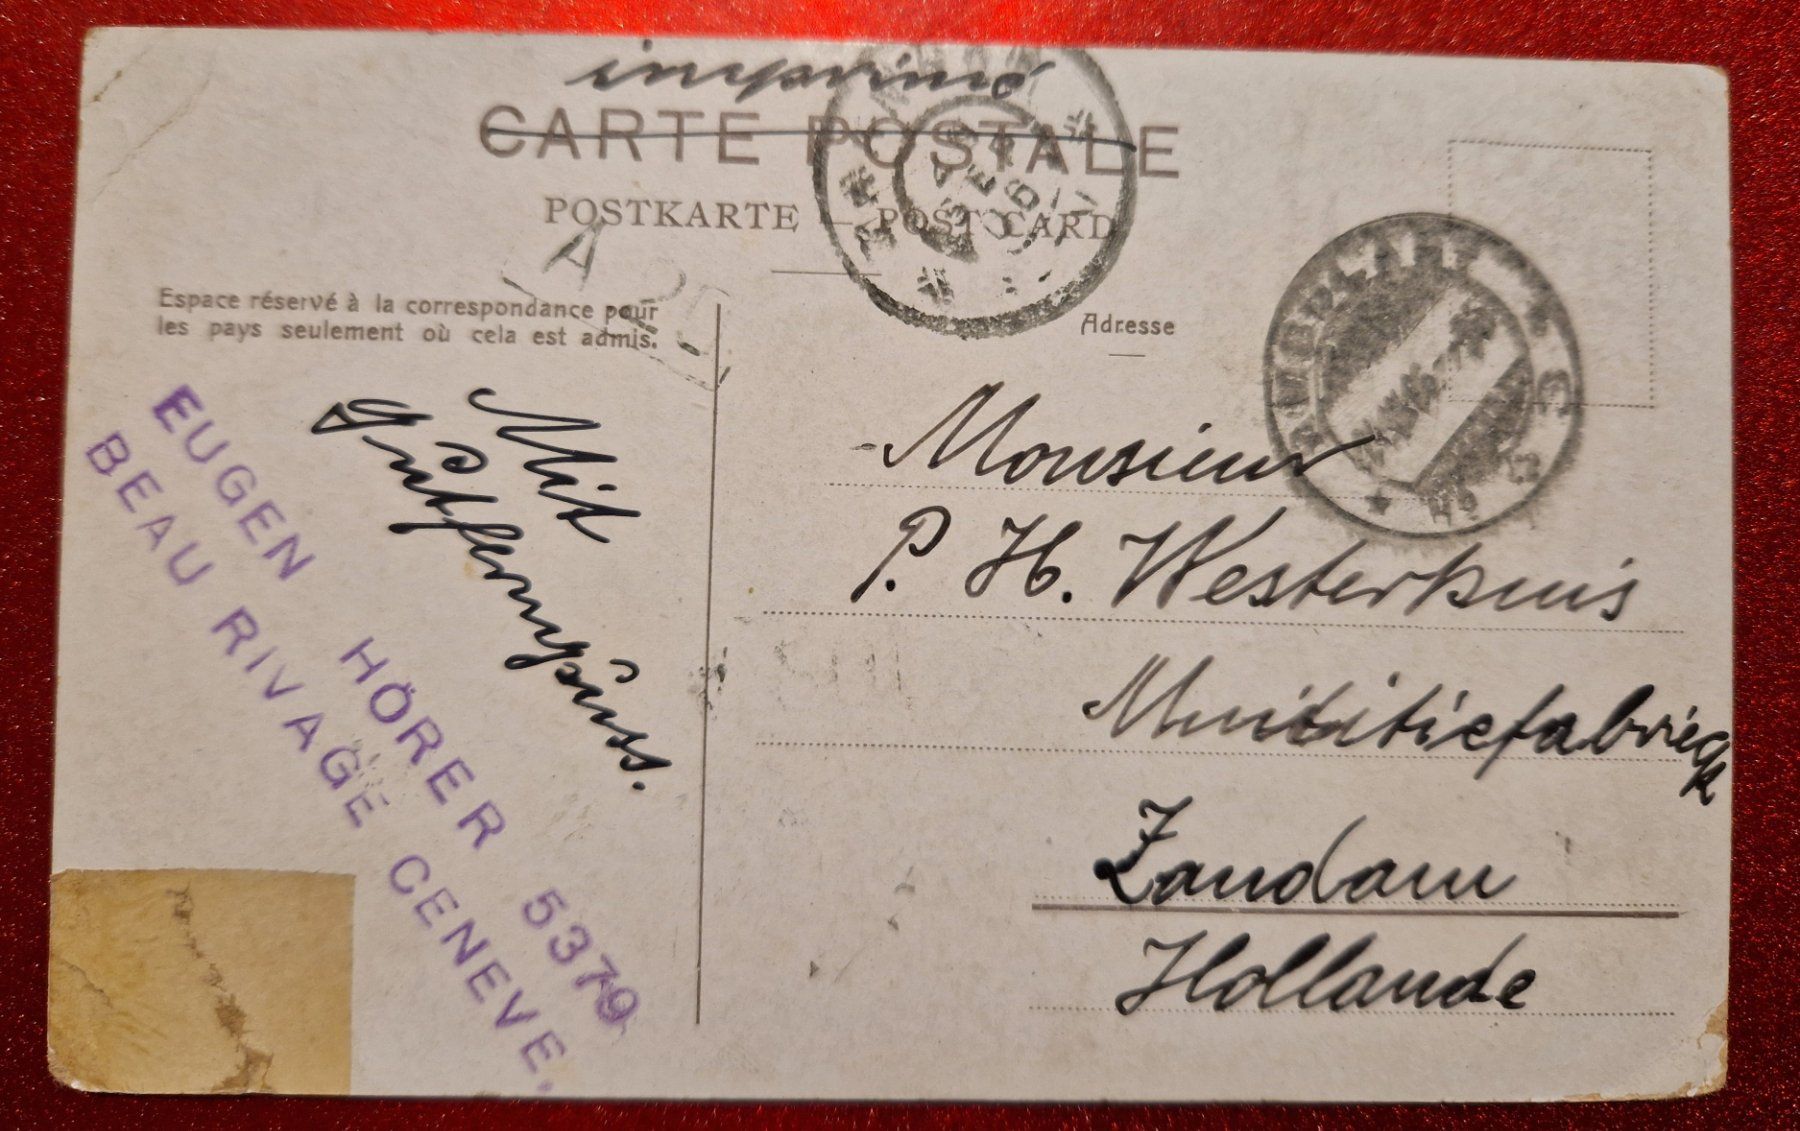 imprimé
CARTE POSTALE
POSTKARTE — POST CARD
Espace réservé à la correspondance pour
les pays seulement où cela est admis.
Adresse
Mit
Gut
EUGEN HÖRER 5379
BEAU RIVAGE GENEVE.
Monsieur
P. H. Westerhuis
Zaandam
Hollande